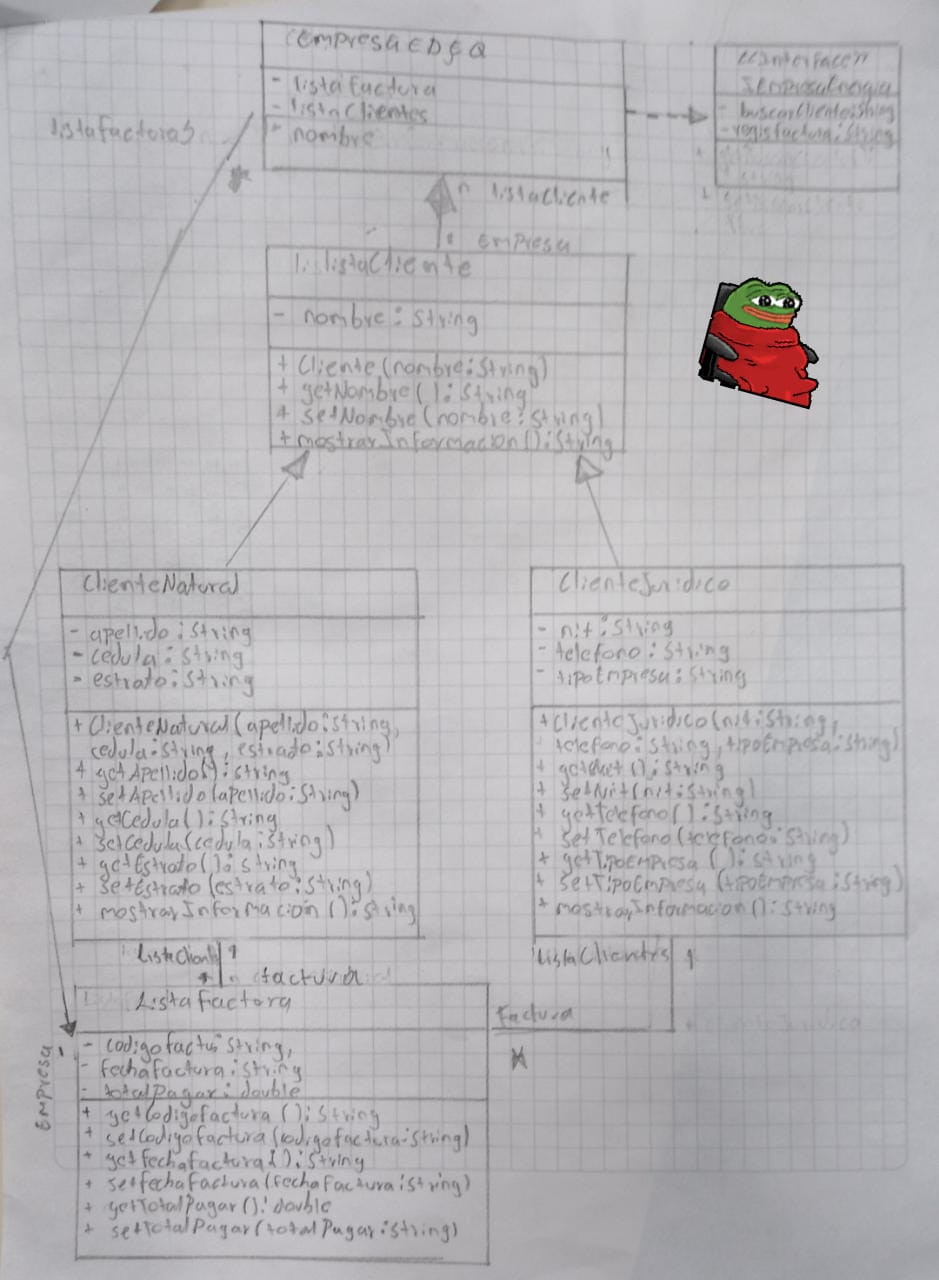 EmpresaEDEQ
- listafactura
- listaClientes
- nombre
<<Interface>>
IEmpresaEnergia
- buscarCliente:String
- regisfactura:String
listafacturas
*
n listaCliente
1 Empresa
listaCliente
- nombre: String
+ Cliente(nombre:String)
+ getNombre(): String
+ setNombre(nombre:String)
+ mostrarInformacion():String
ClienteNatural
- apellido: String
- cedula: String
- estrato: String
+ ClienteNatural(apellido:String,
cedula:String, estrado:String)
+ getApellido():String
+ setApellido(apellido:String)
+ getCedula():String
+ setCedula(cedula:String)
+ getEstrato():String
+ setEstrato(estrato:String)
+ mostrarInformacion():String
ClienteJuridico
- nit: String
- telefono: String
- tipoEmpresa: String
+ ClienteJuridico(nit:String,
telefono:String, tipoEmpresa:String)
+ getNet():String
+ setNit(nit:String)
+ getTelefono():String
+ setTelefono(telefono:String)
+ getTipoEmpresa():String
+ setTipoEmpresa(tipoEmpresa:String)
+ mostrarInformacion():String
listaClients 1
factura
listaClientes 1
factura
*
Empresa
1
Listafactora
- codigofactu String,
- fechafactura:String
- totalPagar:double
+ getCodigofactura():String
+ setCodigofactura(codigofactura:String)
+ getfechafactura():String
+ setfechafactura(fechafactura:String)
+ getTotalPagar():double
+ setTotalPagar(totalPagar:String)